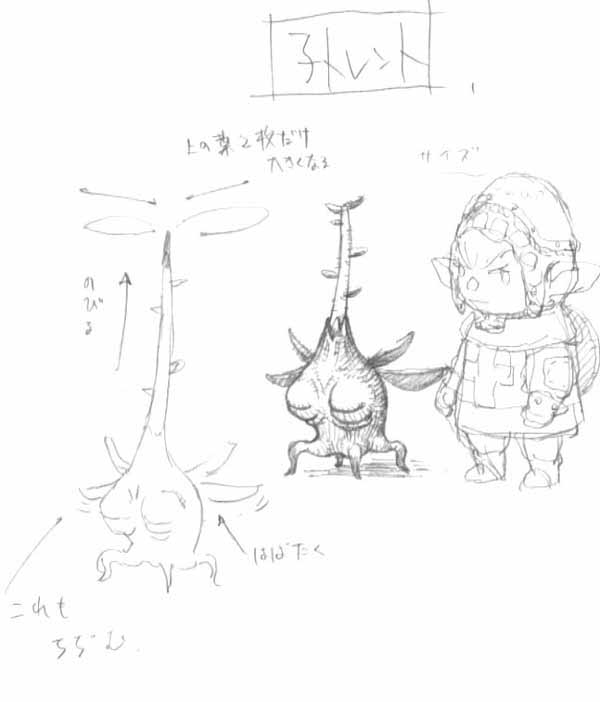 子トレント
上の葉2枚だけ
大きくなる
サイズ
のびる
はばたく
これも
ちぢむ.